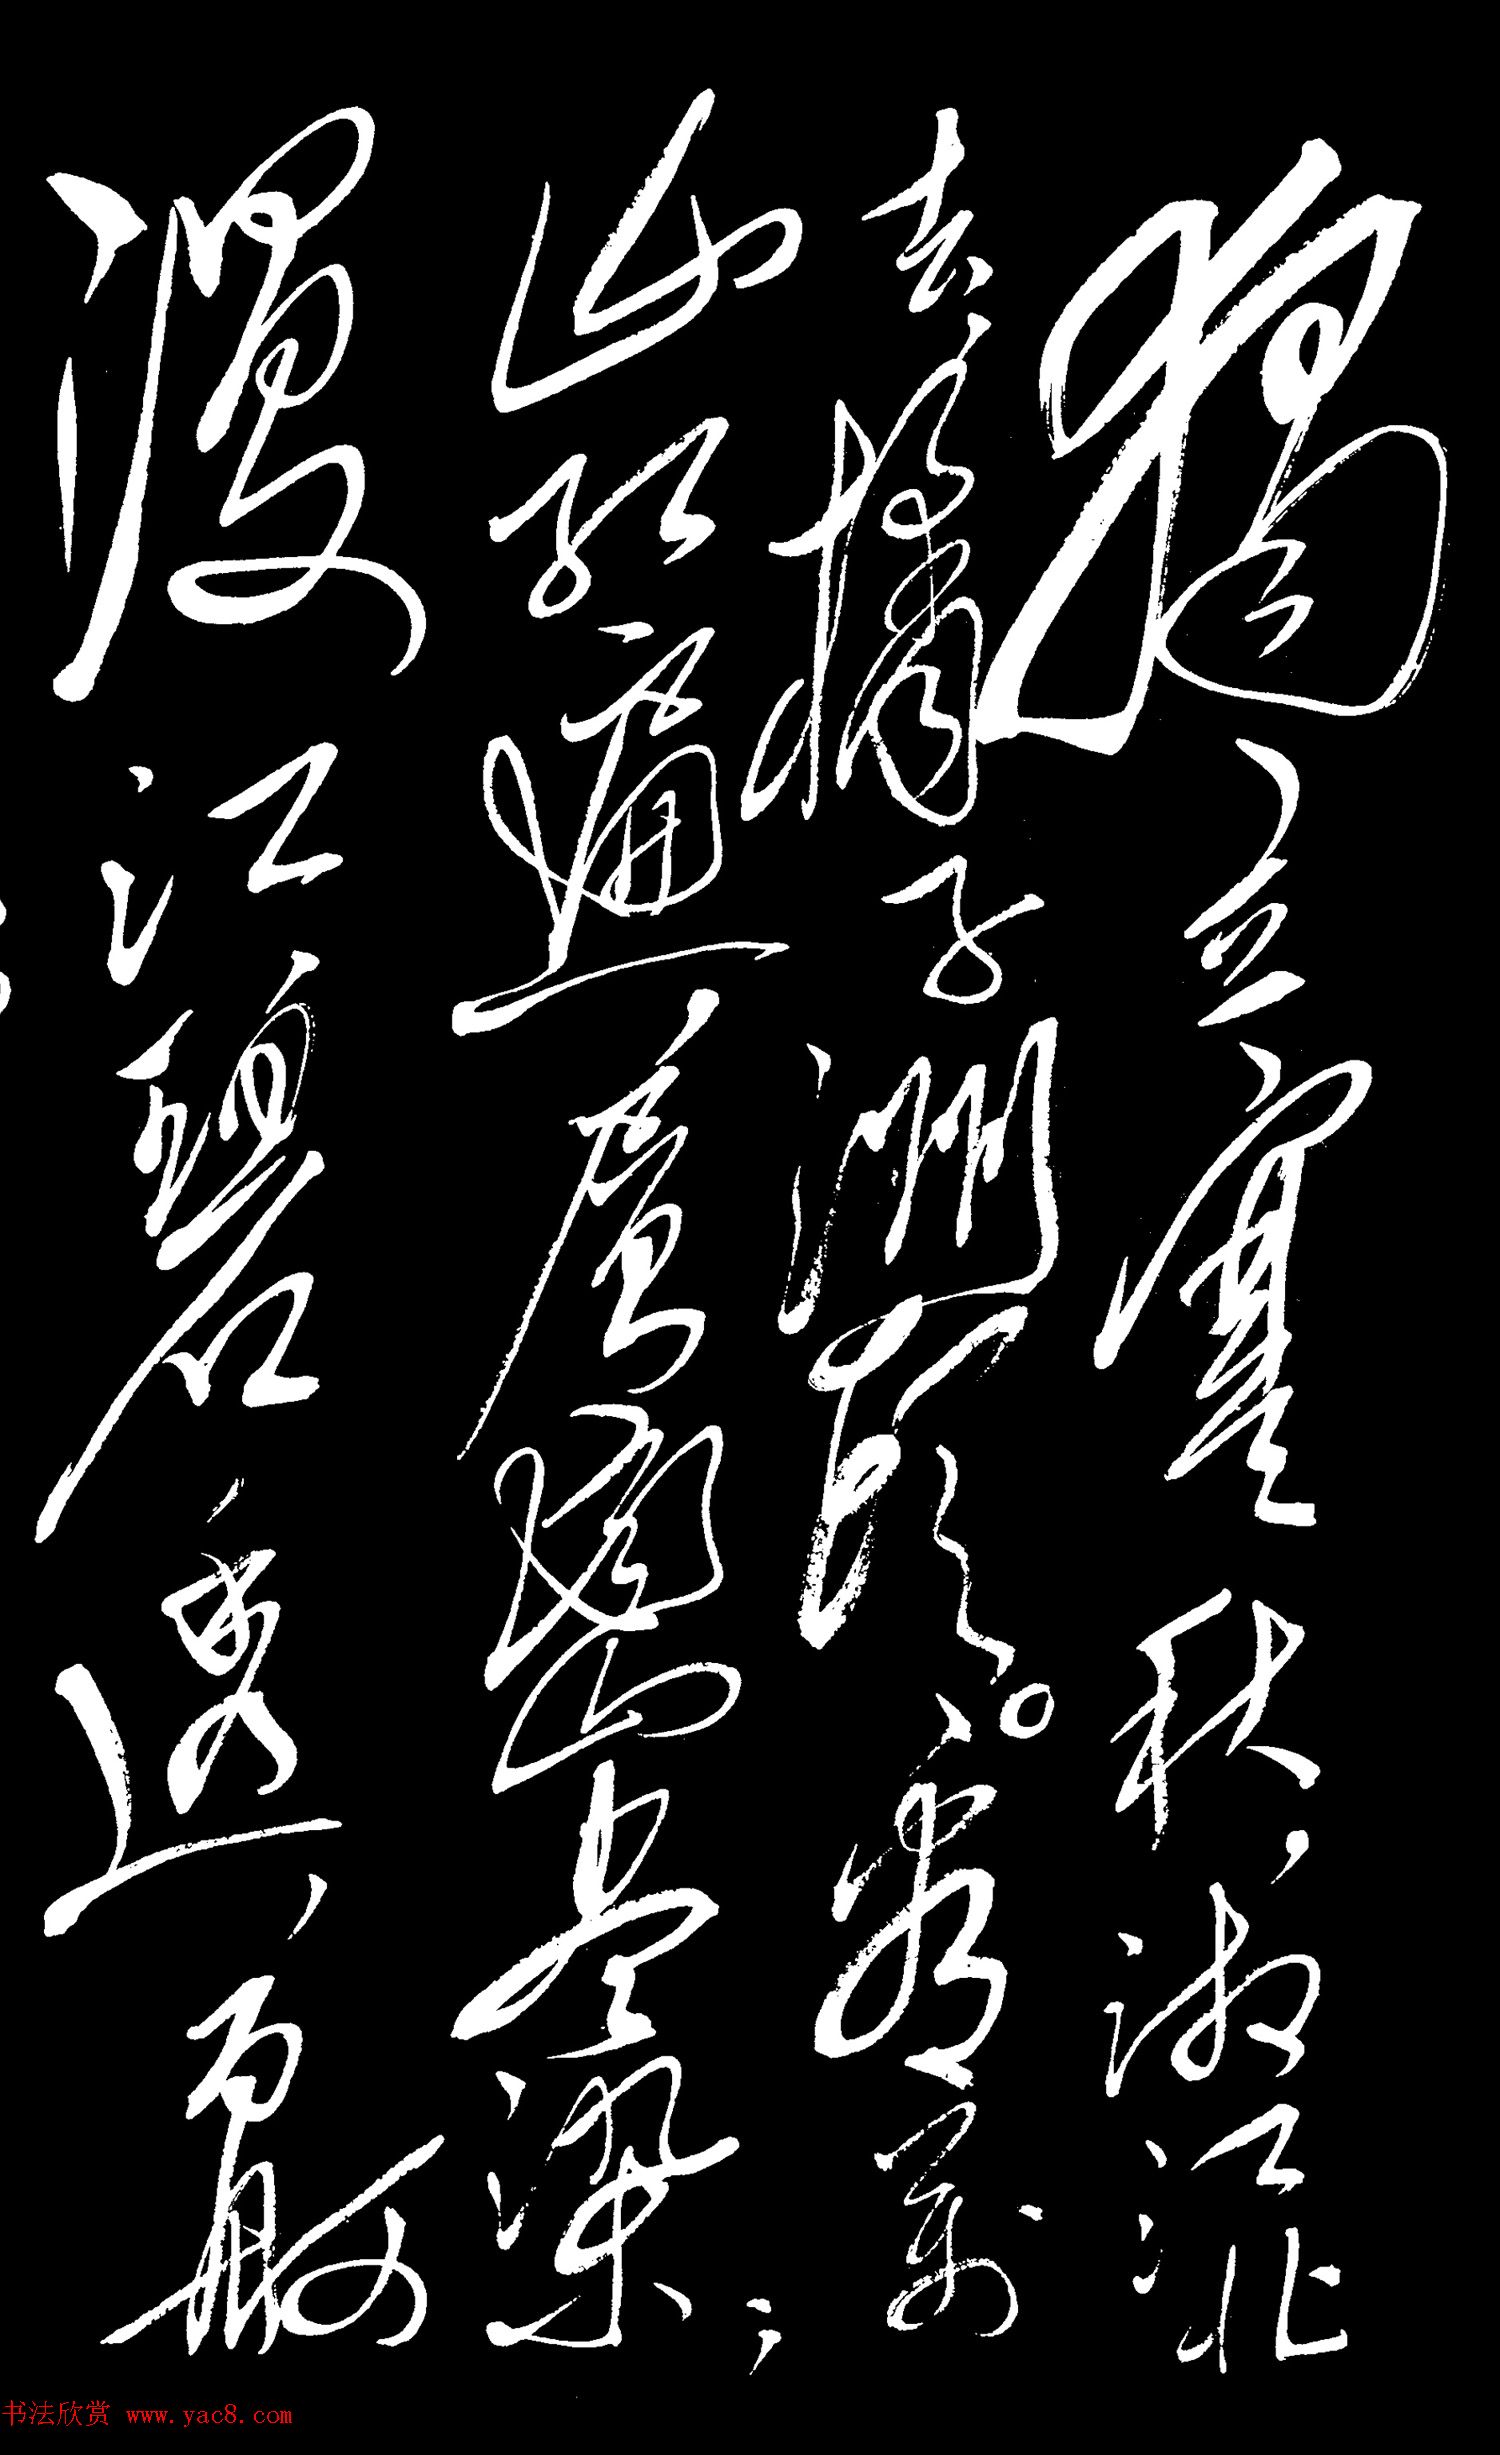 獨立寒秋，湘江北
去，橘子洲頭。看萬
山紅遍，層巒盡染；
漫江碧透，百舸
书法欣赏 www.yac8.com